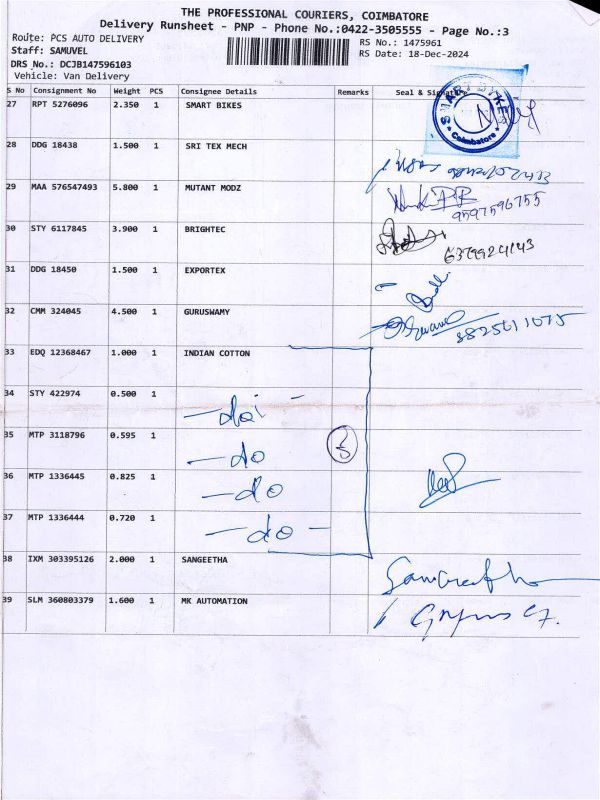 THE PROFESSIONAL COURIERS, COIMBATORE
Delivery Runsheet - PNP - Phone No.:0422-3505555 - Page No.:3
Route: PCS AUTO DELIVERY
RS No.: 1475961
Staff: SAMUVEL
RS Date: 18-Dec-2024
DRS No.: DCJB147596103
Vehicle: Van Delivery
S No Consignment No Weight PCS Consignee Details Remarks Seal & Signature
27 RPT 5276096 2.350 1 SMART BIKES
Coimbatore
28 DDG 18438 1.500 1 SRI TEX MECH
29 MAA 576547493 5.800 1 MUTANT MODZ
9597596755
30 STY 6117845 3.900 1 BRIGHTEC
6379924143
31 DDG 18450 1.500 1 EXPORTEX
32 CMM 324045 4.500 1 GURUSWAMY
8825611075
33 EDQ 12368467 1.000 1 INDIAN COTTON
34 STY 422974 0.500 1
35 MTP 3118796 0.595 1 -do
36 MTP 1336445 0.825 1 -do
37 MTP 1336444 0.720 1 -do-
38 IXM 303395126 2.000 1 SANGEETHA
39 SLM 360803379 1.600 1 MK AUTOMATION